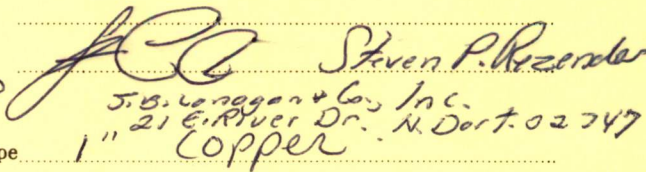 Steven P. Rezendes
J.B. Lanagan & Co., Inc.
21 E. River Dr. N. Dart. 02747
pe 1" Copper